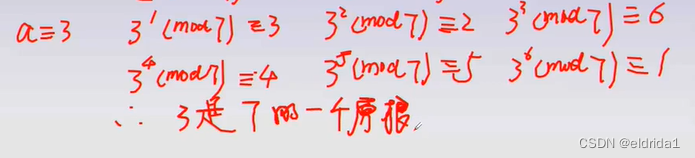 a≡3 3^1(mod7)≡3 3^2(mod7)≡2 3^3(mod7)≡6
3^4(mod7)≡4 3^5(mod7)≡5 3^6(mod7)≡1
∴ 3是7的一个原根.
CSDN @eldrida1